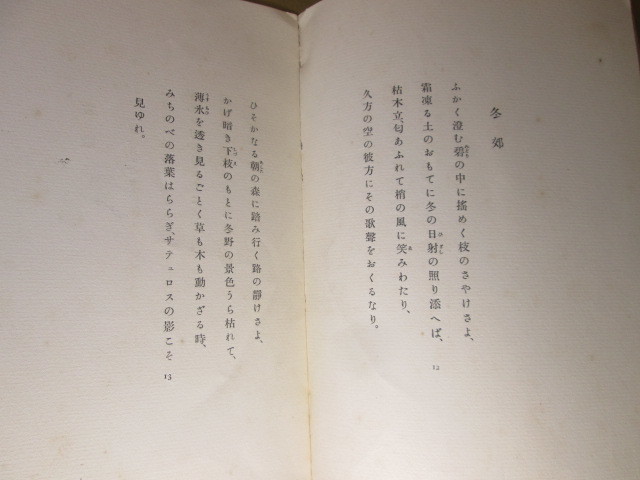 冬郊
ふかく澄む碧の中に搖めく枝のさやけさよ、
霜凍る土のおもてに冬の日射の照り添へば、
枯木立、匂あふれて梢の風に笑みわたり、
久方の空の彼方にその歌聲をおくるなり。
12
ひそかなる朝の森に踏み行く路の靜けさよ、
かげ暗き下枝のもとに冬野の景色うら枯れて、
薄氷を透き見るごとく草も木も動かざる時、
みちのべの落葉はららぎ、サテュロスの影こそ
見ゆれ。
13